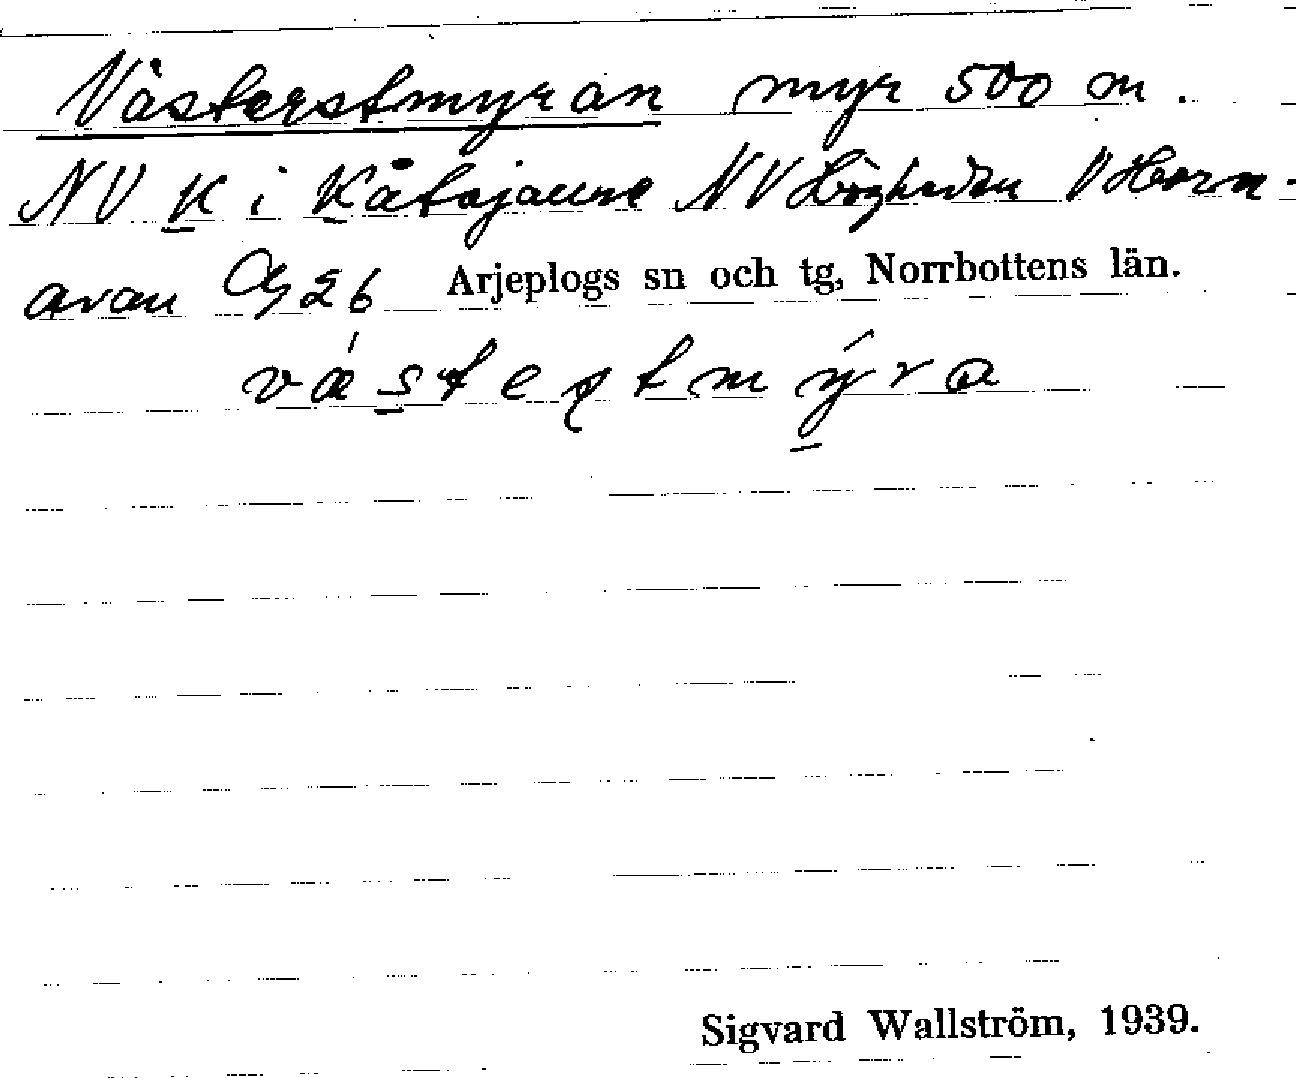 Västerstmyran myr 500 m.
NV K i Kåtajaure NV Högheden V Horn-
avan Og 26 Arjeplogs sn och tg, Norrbottens län.
västeʂtmýra
Sigvard Wallström, 1939.